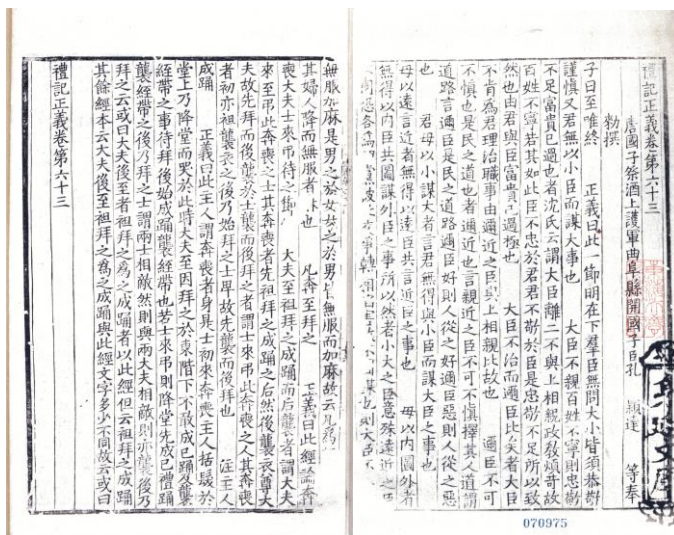 禮記正義卷第六十三
唐國子祭酒上護軍曲阜縣開國子臣孔 穎達 等奉
勑撰
子曰至唯終 正義曰此一節明在下羣臣無問大小皆須恭敬
謹慎又君無以小臣而謀大事也 大臣不親百姓不寧則忠敬
不足富貴已過也者沈氏云謂大臣離二不與上相親政敎煩苛故
百姓不寧若其如此臣不忠於君君不敬於臣是忠敬不足所以致
然也由君與臣富貴已過極也 大臣不治而邇臣比矣者大臣
不肯爲君理治職事由邇近之臣與上相親比故也 邇臣不可
不慎也是民之道也者邇近也言親近之臣不可不慎擇其人道謂
道路言邇臣是民之道路邇臣好則人從之好邇臣惡則人從之惡
也 君毋以小謀大者言君無得與小臣而謀大臣之事也
毋以遠言近者無得以遠臣共言近臣之事也 毋以內圖外者
無得以內臣共圖謀外臣之事所以然者小大之臣意殊遠近之臣
不同恐各爲
070975
無服加麻是男之於女女之於男皆無服而加麻故云凡爲
其婦人降而無服者 也 凡奔至拜之 正義曰此經論奔
喪大夫士來弔待之節 大夫至袒拜之成踊而后襲者謂大夫
來至弔此奔喪之士其奔喪者先袒拜之成踊之后然後襲衣尊大
夫故先拜而後襲於士襲而後拜之者謂士來弔此奔喪之人其奔喪
者初亦袒襲衣之後乃始拜之士卑故先襲而後拜也 注主人
成踊 正義曰此主人謂奔喪者身是士初來奔喪主人括髮於
堂上乃降堂而哭於此時大夫至因拜之於東階下不敢成已踊及襲
絰帶之事待拜後始成踊襲絰帶也若士來弔則降堂先成已禮踊
襲絰帶之後乃拜之士謂兩士相敵然則與兩大夫相敵則亦襲後乃
拜之云或曰大夫後至者袒拜之爲之成踊者以此經但云袒拜之成踊
其餘經本云大夫後至袒拜之爲之成踊與此經文字多少不同故云或曰
禮記正義卷第六十三